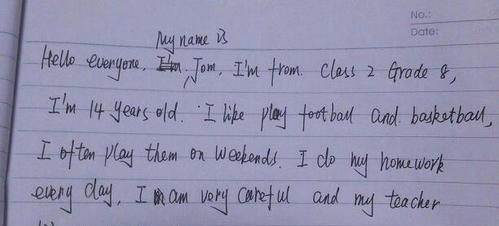 No.:
Date:
my name is
Hello everyone, I'm Tom, I'm from. Class 2 Grade 8,
I'm 14 years old. I like play football and. basketball,
I often play them on weekends. I do my homework
every day, I am very careful and my teacher